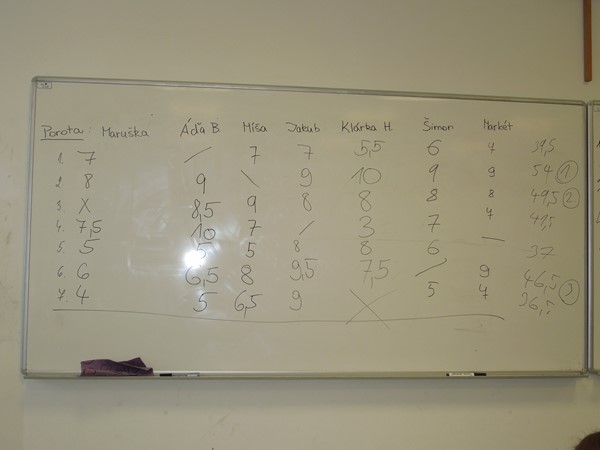 Porota: Maruška Áďa B Míša Jakub Klárka H. Šimon Markét
1. 7 / 7 7 5,5 6 7 39,5
2 8 9 \ 9 10 9 9 54 1
3 X 8,5 9 8 8 8 8 49,5 2
4. 7,5 10 7 / 3 7 7 41,5
5. 5 5 5 8 8 6 — 37
6. 6 6,5 8 9,5 7,5 / 9 46,5 3
7. 4 5 6,5 9 X 5 7 36,5